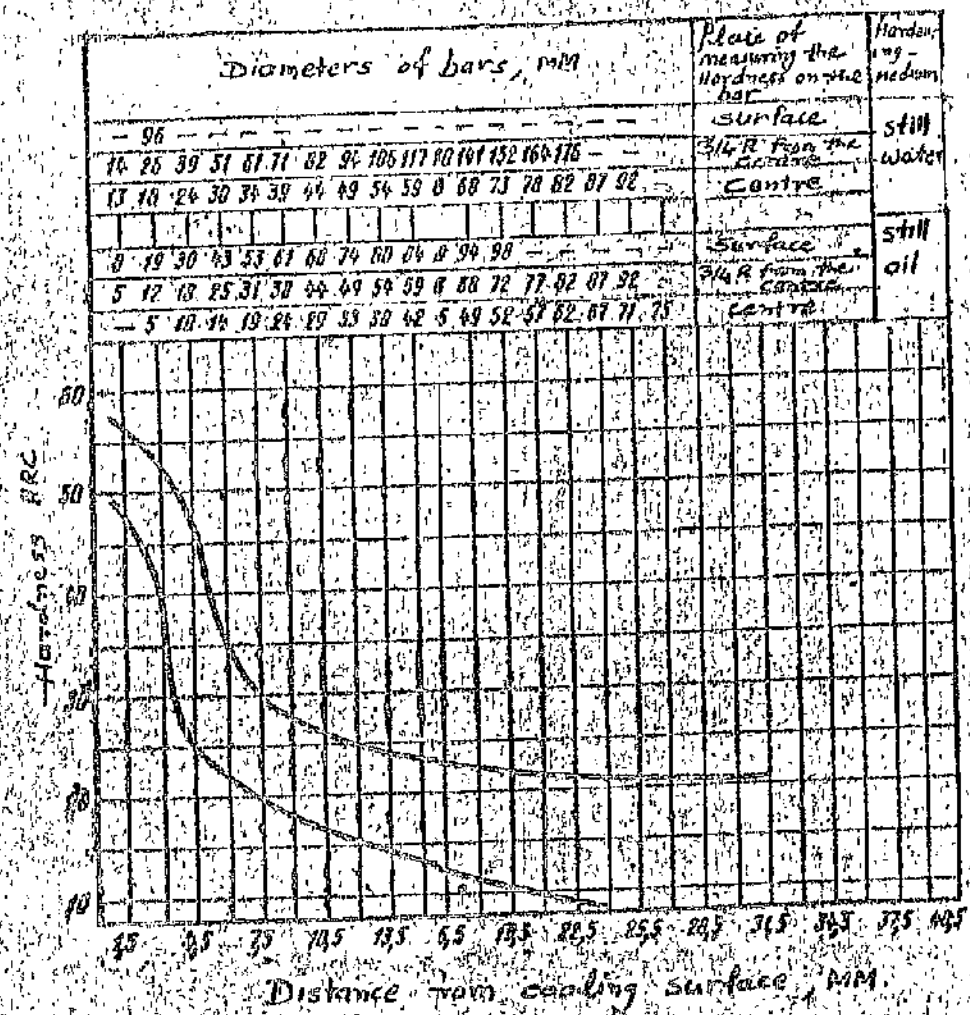 Diameters of bars, MM
Place of
measuring the
Hardness on the
bar
Harden-
ing-
medium
— 96 — — — — — — — — — — — — — — —
surface
still
water
14 26 39 51 61 71 82 94 106 117 141 152 164 176 — —
3/4 R from the
centre
13 18 24 30 34 39 44 49 54 59 68 73 78 82 87 92
Centre
8 19 30 43 53 61 68 74 80 84 94 98 — — — —
surface
still
oil
5 12 18 25 31 38 44 49 54 59 68 72 77 82 87 92
3/4 R from the
centre
— 5 10 14 19 24 29 33 38 42 49 52 57 62 67 71 75
centre
60
50
40
30
20
10
Hardness HRC
1,5 7,5 10,5 13,5 22,5 25,5 28,5 31,5 34,5 37,5 40,5
Distance from cooling surface, MM.